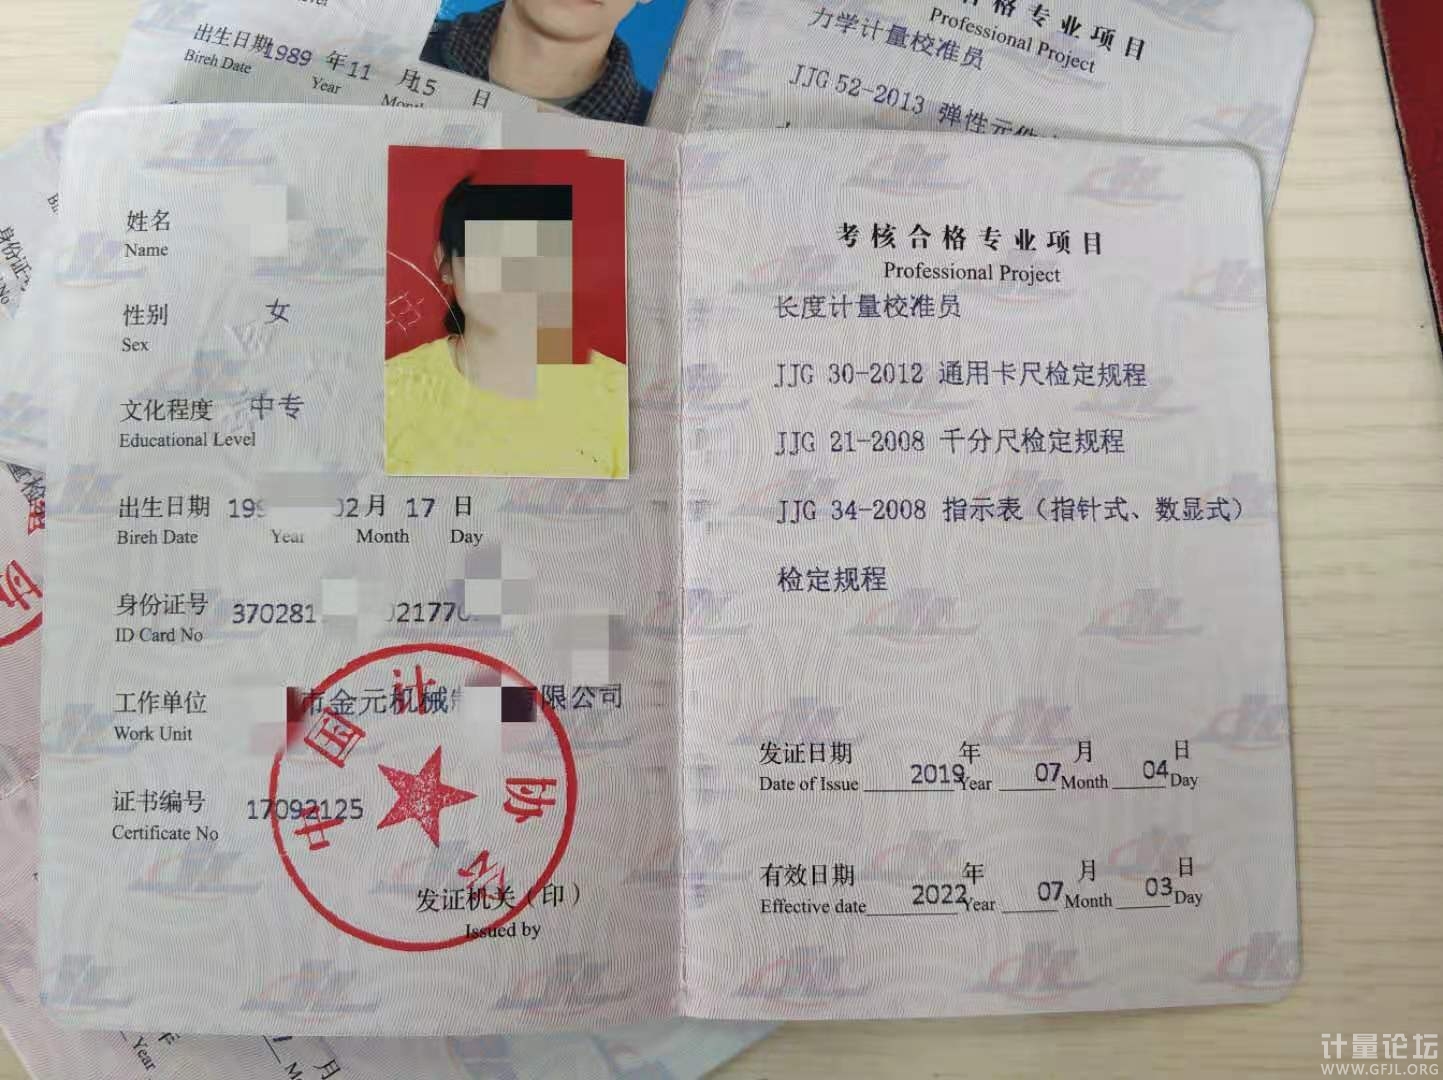 出生日期 1989 年 11 月 15 日
Bireh Date Year Month
力学计量校准员
格专业项目
Professional Project
JJG 52-2013 弹性元件
姓名
Name
性别 女
Sex
文化程度 中专
Educational Level
出生日期 199 02 月 17 日
Bireh Date Year Month Day
身份证号 370281 02177
ID Card No
工作单位 市金元机械制 有限公司
Work Unit
证书编号 17092125
Certificate No
中国计 协会
发证机关（印）
Issued by
考核合格专业项目
Professional Project
长度计量校准员
JJG 30-2012 通用卡尺检定规程
JJG 21-2008 千分尺检定规程
JJG 34-2008 指示表（指针式、数显式）
检定规程
发证日期 年 月 日
Date of Issue 2019 Year 07 Month 04 Day
有效日期 年 月 日
Effective date 2022 Year 07 Month 03 Day
身份证
No
量检
协
Year
月
计量论坛
WWW.GFJL.ORG